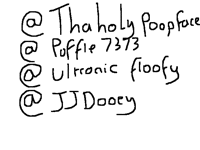 @ Thaholy Poopface
@ Poffle 7373
@ Ultronic floofy
@ JJDooey